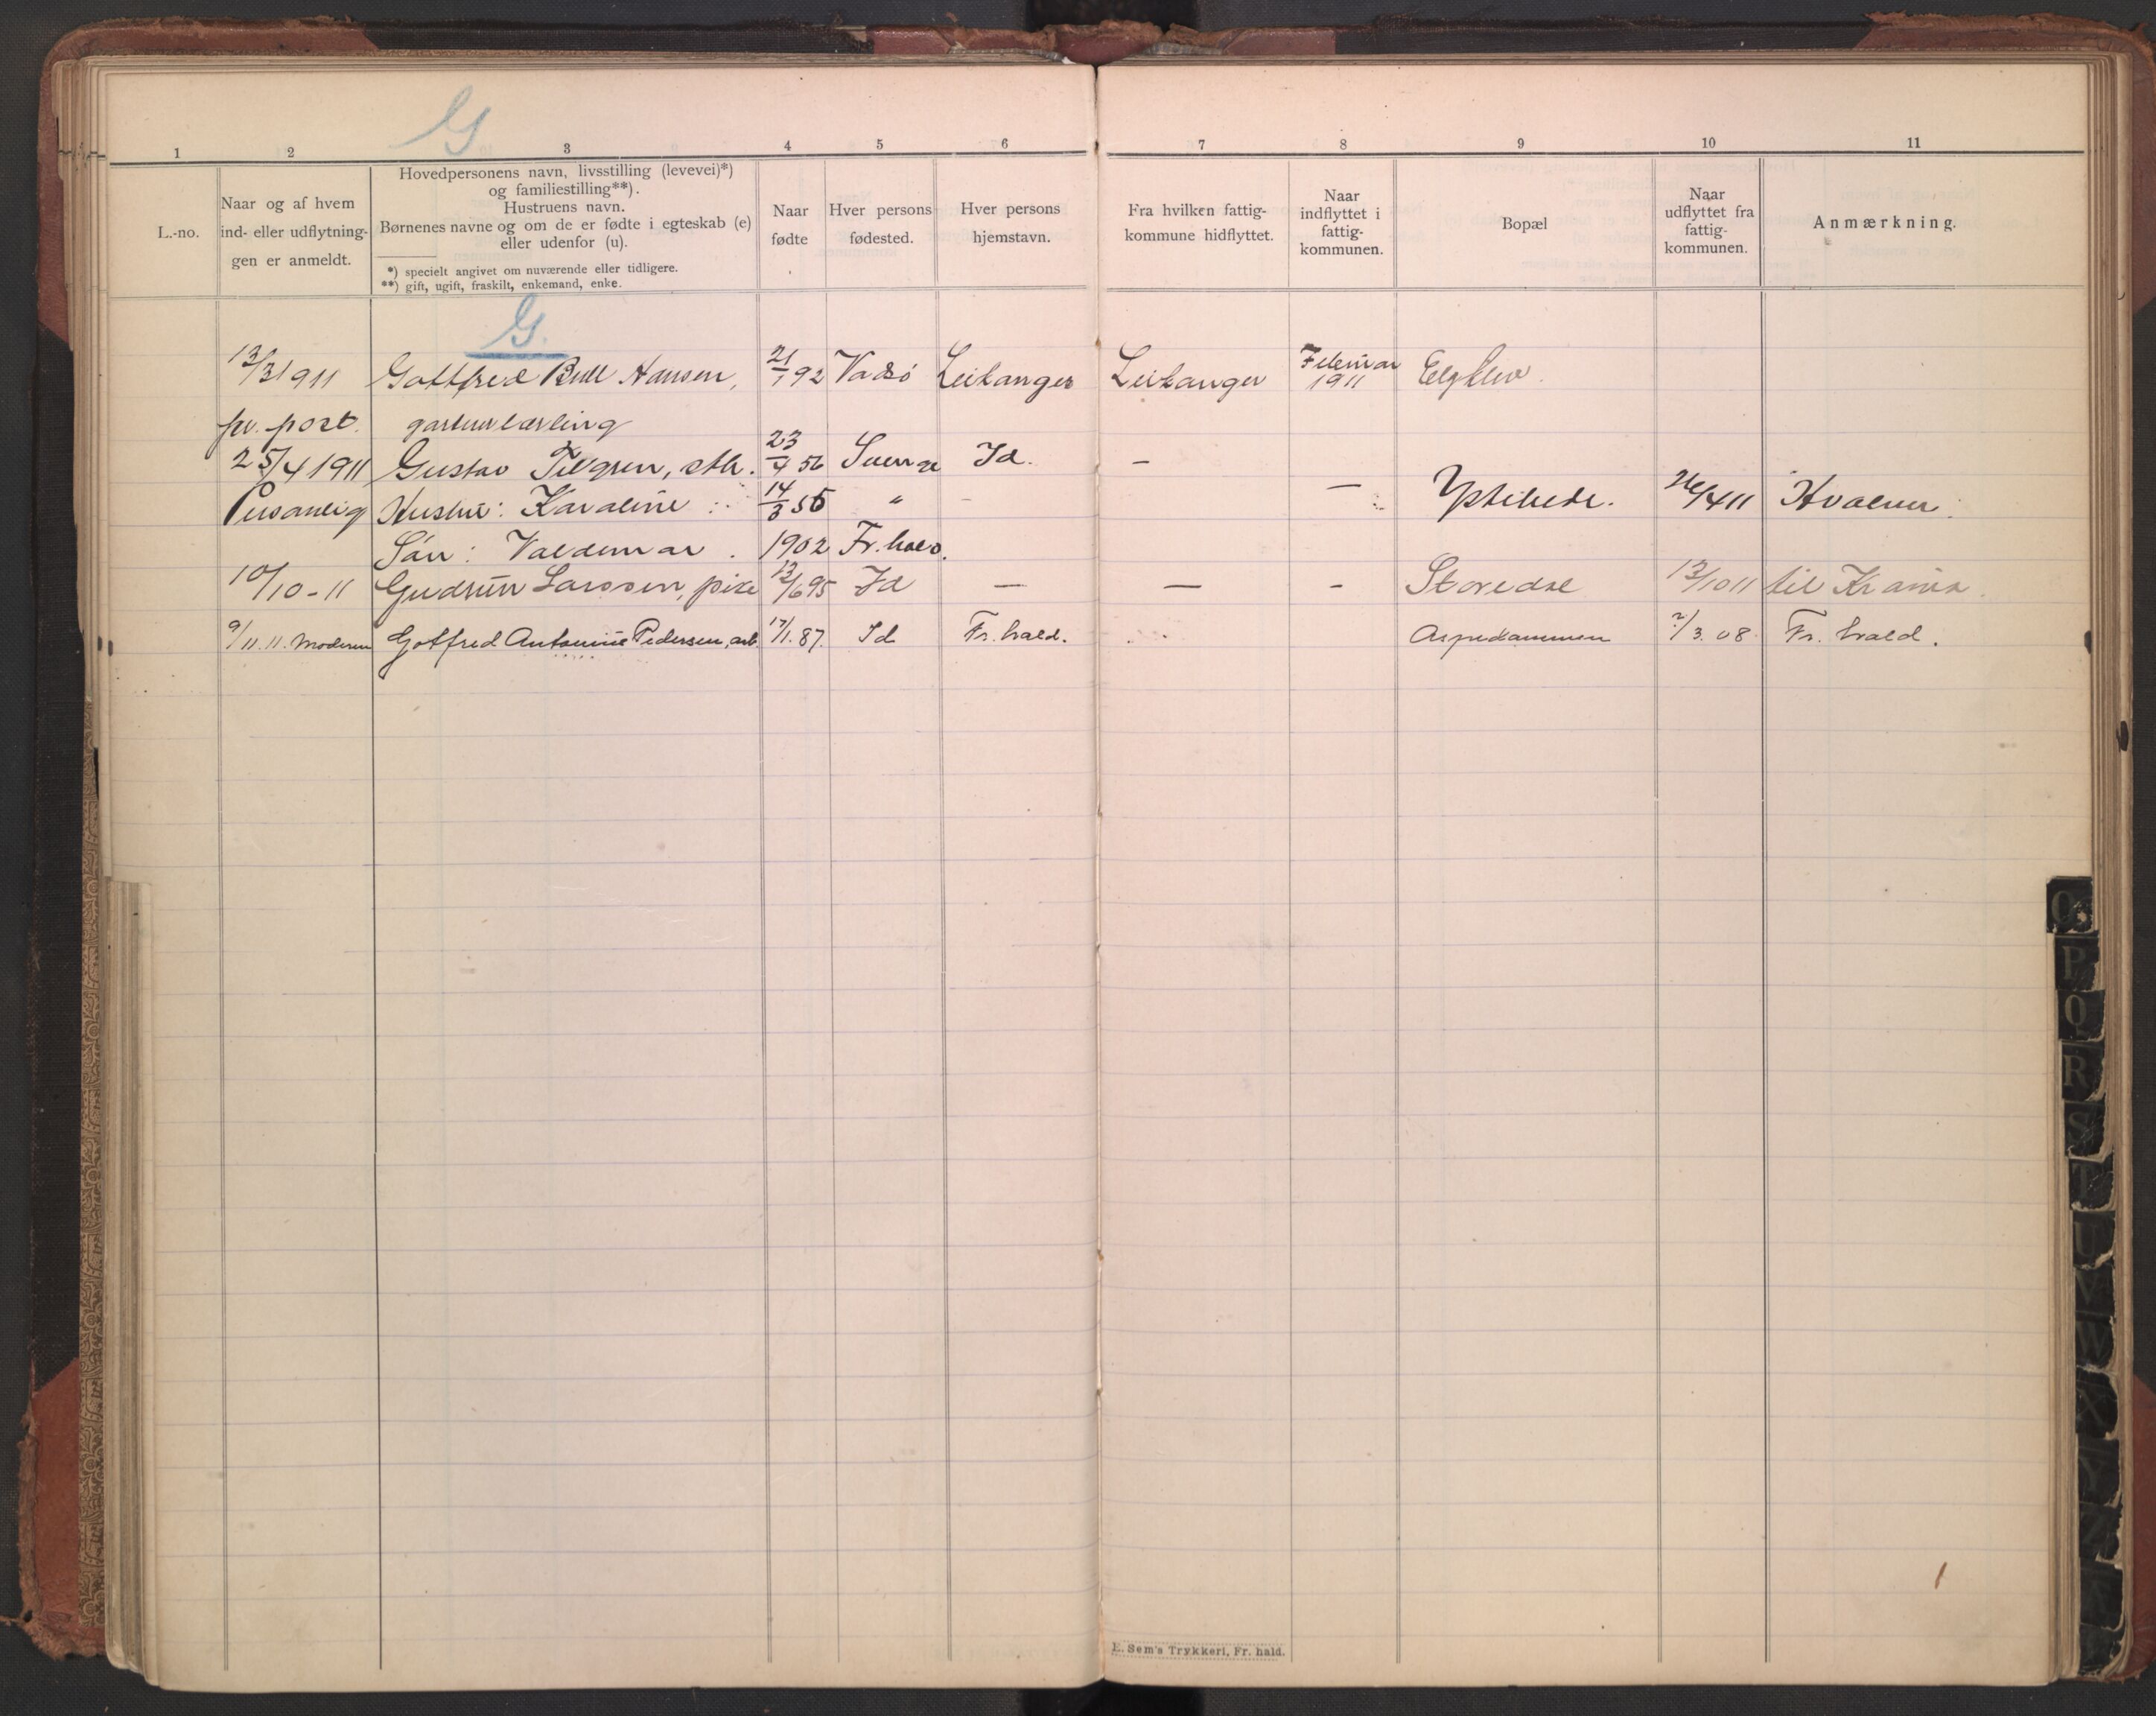 G
1 2 3 4 5 6 7 8 9 10 11
L.-no.
Naar og af hvem
ind- eller udflytnin-
gen er anmeldt.
Hovedpersonens navn, livsstilling (levevei)*)
og familiestilling**).
Hustruens navn.
Børnenes navne og om de er fødte i egteskab (e)
eller udenfor (u).
*) specielt angivet om nuværende eller tidligere.
**) gift, ugift, fraskilt, enkemand, enke.
Naar
fødte
Hver persons
fødested.
Hver persons
hjemstavn.
Fra hvilken fattig-
kommune hidflyttet.
Naar
indflyttet i
fattig-
kommunen.
Bopæl
Naar
udflyttet fra
fattig-
kommunen.
Anmærkning.
G.
13/3 1911 Gottfred Bull Hansen, 21/1 92 Vadsö Leikanger Leikanger Februar 1911
pr. post. gartnerlærling
25/4 1911 Gustav 23/4 56 Id. -
Personlig Hustru: Karoline 14/3 55 " - - 26/4 11 Hvaler.
Sön: Valdemar. 1902 Fr.hald.
10/10-11 Gudrun Larssen, pike 13/6 95 Id - - - Storedal 13/10 11 til Kr.ania.
9/11.11. Moderen Gotfred Antonius Pedersen, arb. 17/1.87. Id Fr.hald. Aspedammen ?/3.08. Fr.hald.
E. Sem's Trykkeri, Fr. hald.
O
P
Q
R
S
T
U
V
W
X
Y
Z